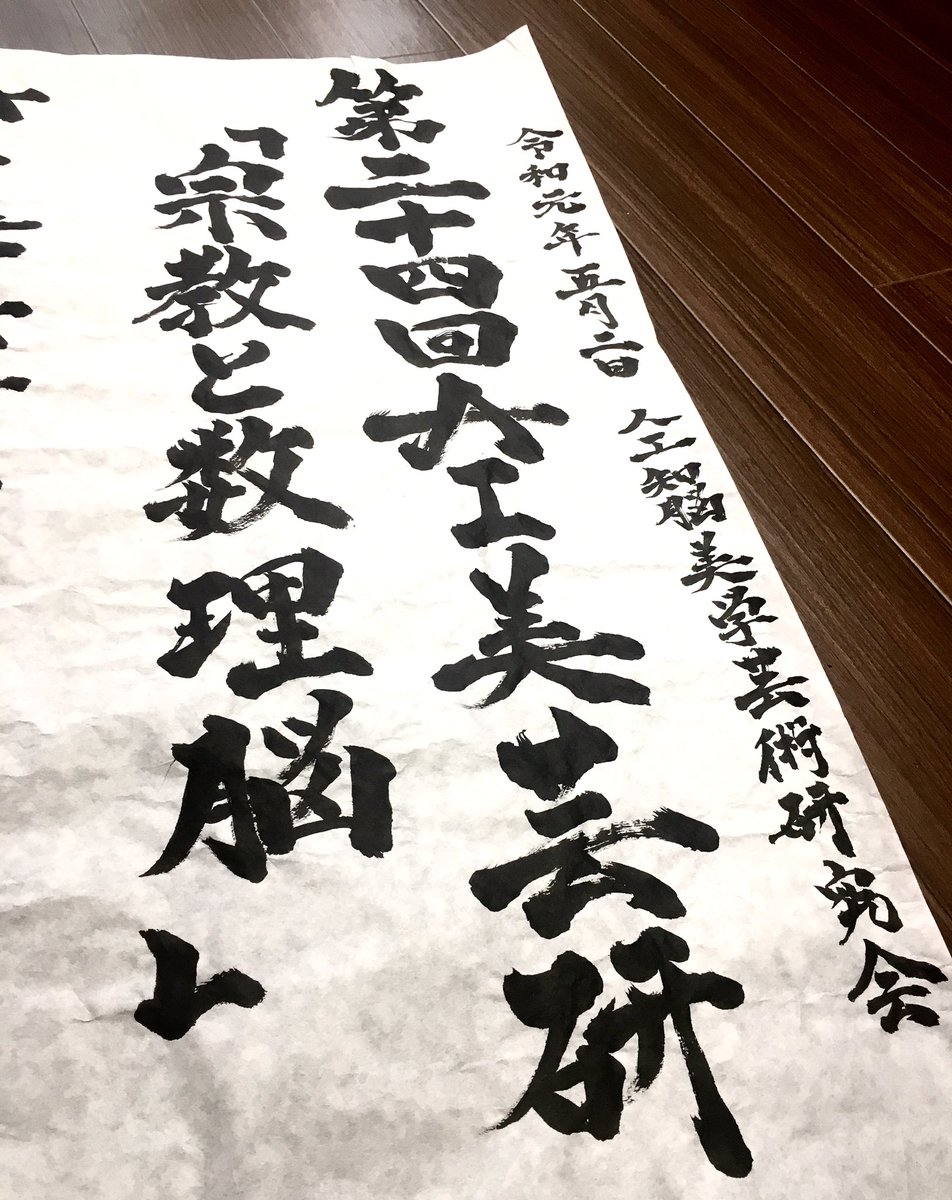 令和元年五月六日 人工知脳美学芸術研究会
第二十四回AI美芸研
「宗教と数理脳」